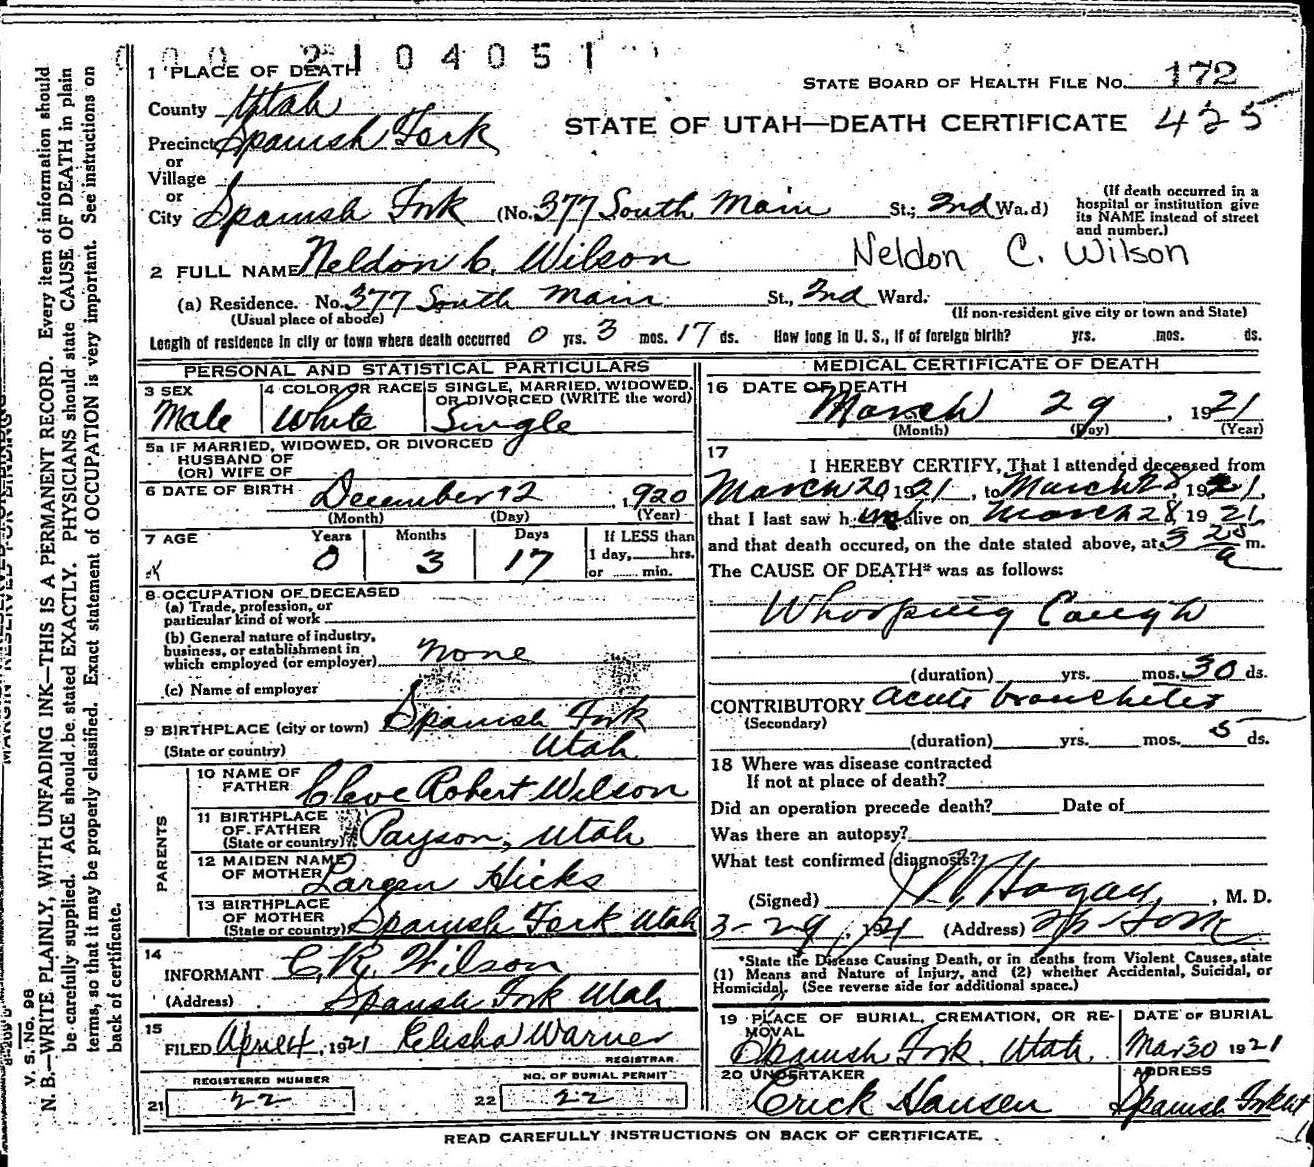 0 0 0 2 1 0 4 0 5 1
1 PLACE OF DEATH
STATE BOARD OF HEALTH FILE NO. 172
County Utah
STATE OF UTAH—DEATH CERTIFICATE 425
Precinct Spanish Fork
or
Village
or
City Spanish Fork (No. 377 South Main St.; 2nd Wa.d)
(If death occurred in a
hospital or institution give
its NAME instead of street
and number.)
2 FULL NAME Neldon C. Wilson Neldon C. Wilson
(a) Residence. No. 377 South Main St., 2nd Ward.
(Usual place of abode)
(If non-resident give city or town and State)
Length of residence in city or town where death occurred 0 yrs. 3 mos. 17 ds. How long in U. S., if of foreign birth? yrs. mos. ds.
PERSONAL AND STATISTICAL PARTICULARS
3 SEX Male
4 COLOR OR RACE White
5 SINGLE, MARRIED, WIDOWED,
OR DIVORCED (WRITE the word)
Single
5a IF MARRIED, WIDOWED, OR DIVORCED
HUSBAND OF
(OR) WIFE OF
6 DATE OF BIRTH December 12, 1920
(Month) (Day) (Year)
7 AGE Years Months Days If LESS than
0 3 17 1 day, hrs.
or min.
8 OCCUPATION OF DECEASED
(a) Trade, profession, or
particular kind of work
(b) General nature of industry,
business, or establishment in
which employed (or employer) None
(c) Name of employer
9 BIRTHPLACE (city or town) Spanish Fork
(State or country) Utah
PARENTS
10 NAME OF
FATHER Cleve Robert Wilson
11 BIRTHPLACE
OF FATHER
(State or country) Payson, Utah
12 MAIDEN NAME
OF MOTHER Largen Hicks
13 BIRTHPLACE
OF MOTHER
(State or country) Spanish Fork Utah
14
INFORMANT C. R. Wilson
(Address) Spanish Fork Utah
15
FILED April 4, 1921 Elisha Warner
REGISTRAR
REGISTERED NUMBER
21 22
NO. OF BURIAL PERMIT
22 22
MEDICAL CERTIFICATE OF DEATH
16 DATE OF DEATH
March 29, 1921
(Month) (Day) (Year)
17
I HEREBY CERTIFY, That I attended deceased from
March 20 1921, to March 28, 1921,
that I last saw h im alive on March 28, 1921
and that death occured, on the date stated above, at 3 25 a m.
The CAUSE OF DEATH* was as follows:
Whooping Cough
(duration) yrs. mos. 30 ds.
CONTRIBUTORY acute bronchetes
(Secondary)
(duration) yrs. mos. 5 ds.
18 Where was disease contracted
If not at place of death?
Did an operation precede death? Date of
Was there an autopsy?
What test confirmed diagnosis?
(Signed) Hagan, M. D.
3-29, 1921 (Address) Sp Fork
*State the Disease Causing Death, or in deaths from Violent Causes, state
(1) Means and Nature of Injury, and (2) whether Accidental, Suicidal, or
Homicidal. (See reverse side for additional space.)
19 PLACE OF BURIAL, CREMATION, OR RE-
MOVAL
Spanish Fork, Utah
DATE OF BURIAL
Mar 30 1921
20 UNDERTAKER
Erick Hansen
ADDRESS
Spanish Fork Ut
READ CAREFULLY INSTRUCTIONS ON BACK OF CERTIFICATE.
V. S. No. 98
N. B.—WRITE PLAINLY, WITH UNFADING INK—THIS IS A PERMANENT RECORD. Every item of information should
be carefully supplied. AGE should be stated EXACTLY. PHYSICIANS should state CAUSE OF DEATH in plain
terms, so that it may be properly classified. Exact statement of OCCUPATION is very important. See instructions on
back of certificate.
MARGIN RESERVED FOR BINDING